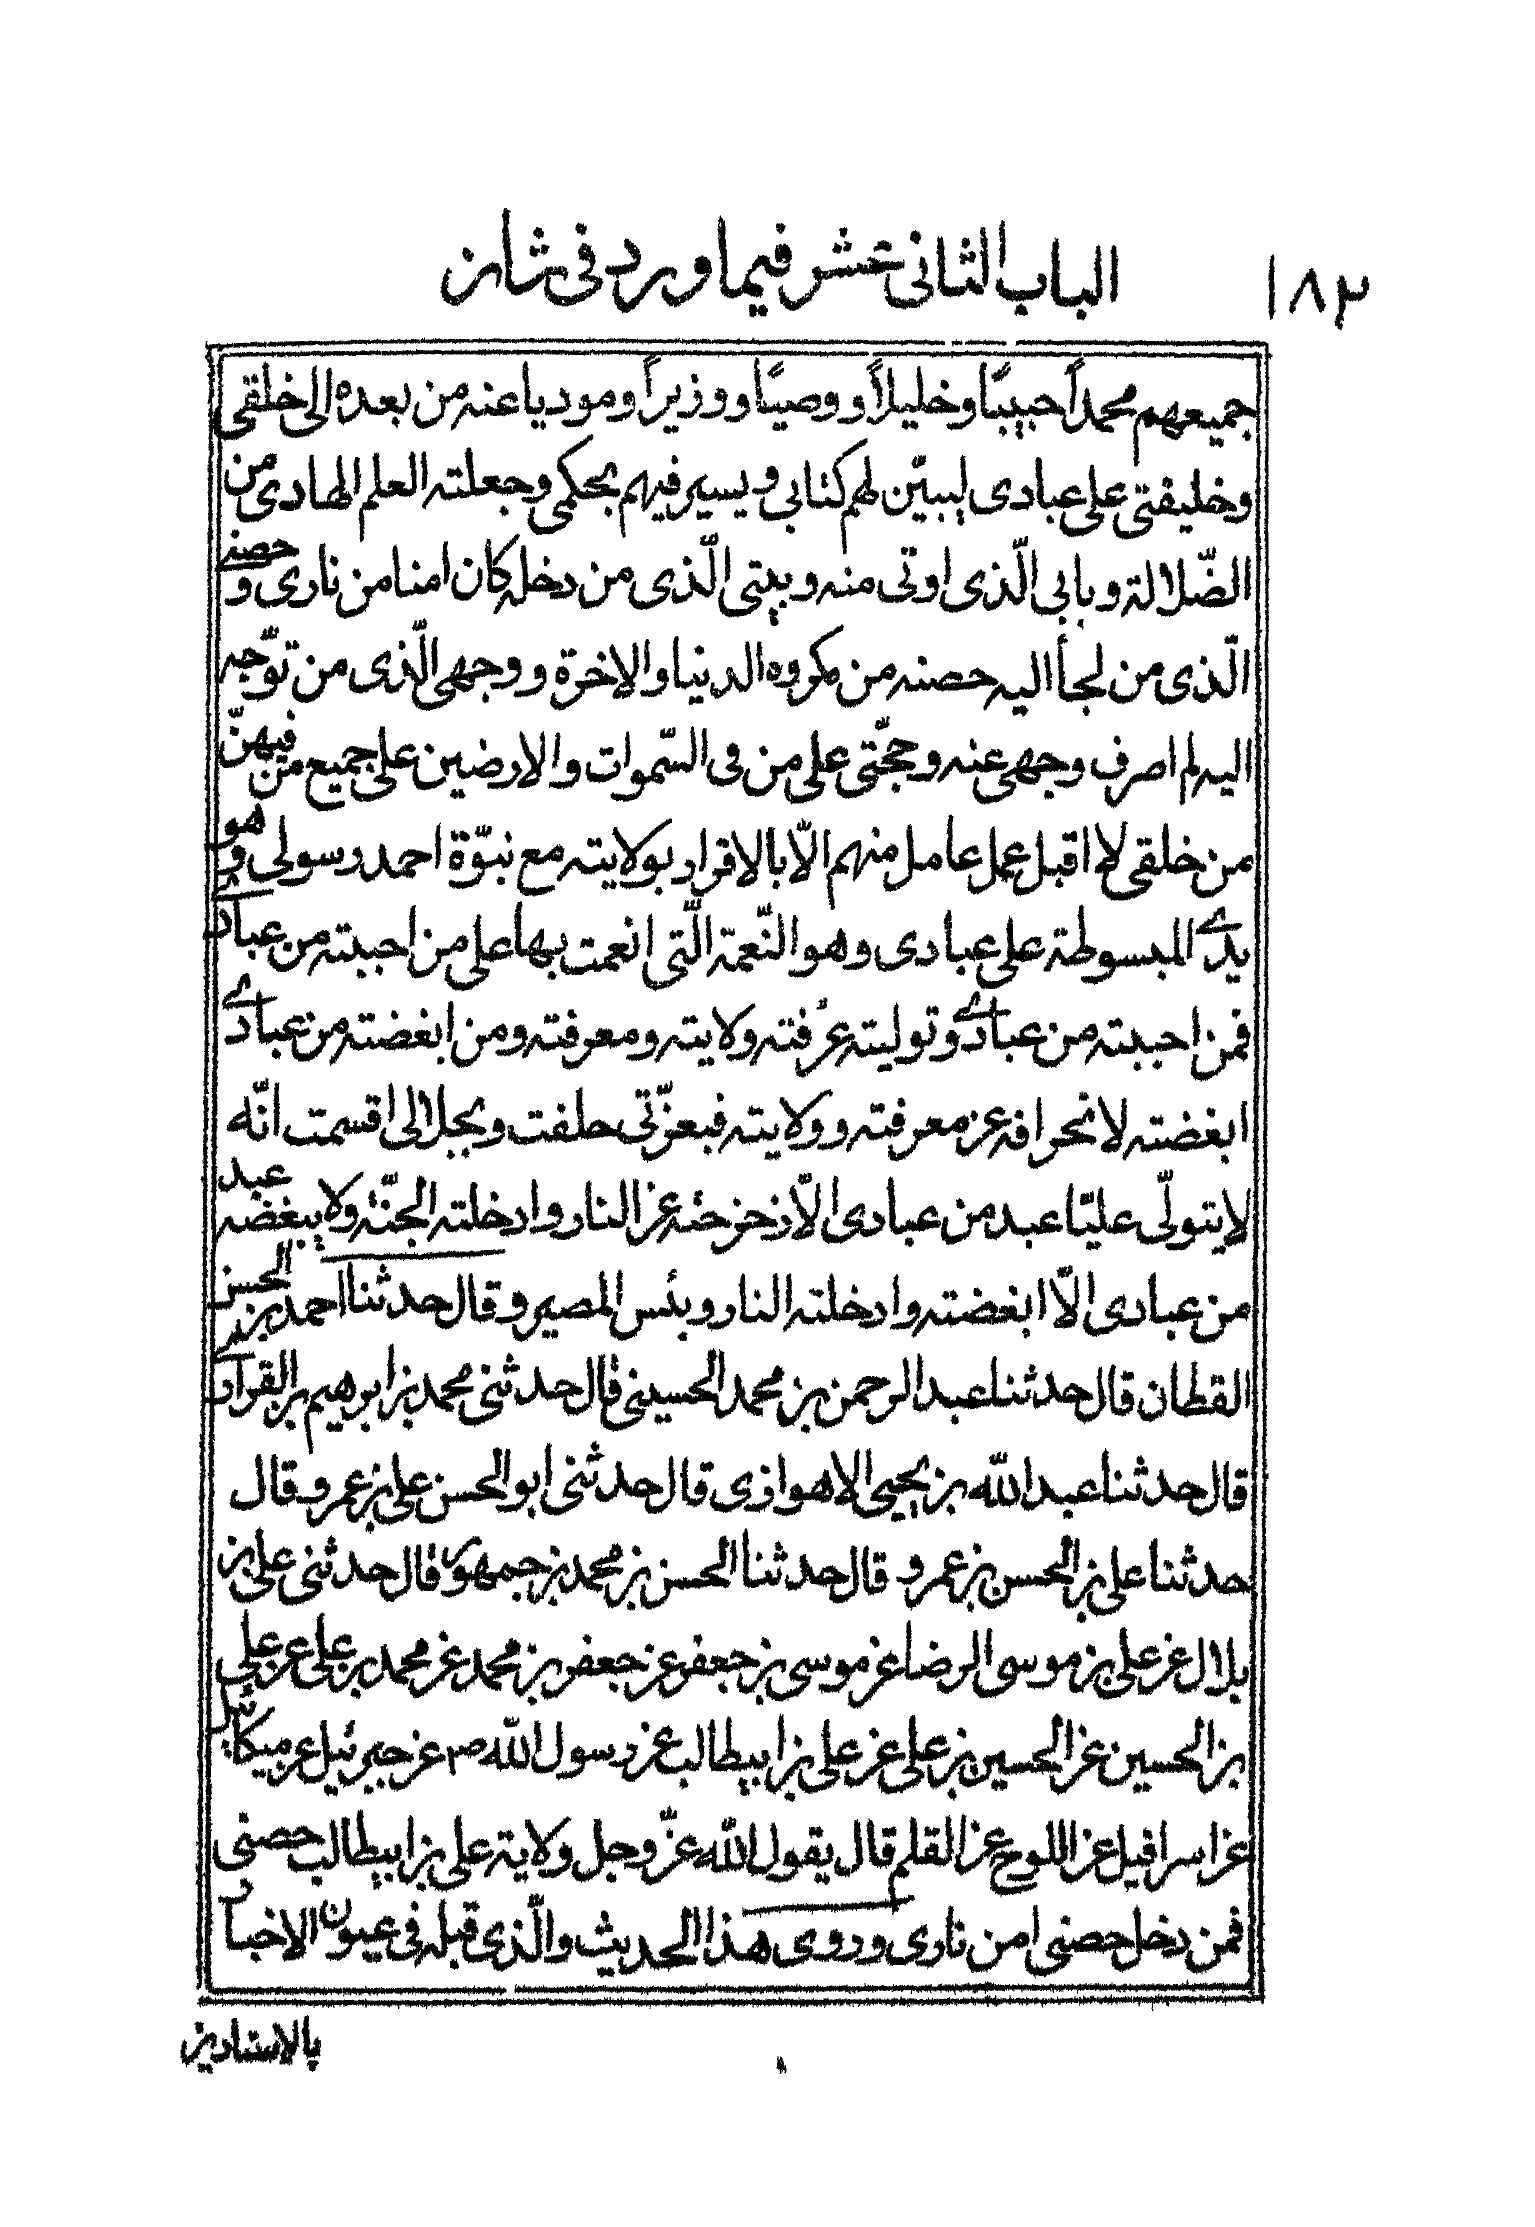 ١٨٢
الباب الثانی عشر فیما ورد فی شان
جمیعهم محمداً حبیبًا و خلیلاً و وصیًا و وزیراً و مودیا عنه من بعده الی خلقی
و خلیفتی علی عبادی لیبیّن لهم کتابی و یسیر فیهم بحکمی و جعلته العلم الهادی من
الضّلالة و بابی الّذی اوتی منه و بیتی الّذی من دخله کان امنا من ناری و حصنی
الّذی من لجأ الیه حصنه من مکروه الدنیا و الاخرة و وجهی الّذی من توّجه
الیه لم اصرف وجهی عنه و حجّتی علی من فی السّموات و الارضین علی جمیع من فیهنّ
من خلقی لا اقبل عمل عامل منهم الّا بالاقرار بولایته مع نبوّة احمد رسولی و هو
یدی المبسوطة علی عبادی و هو النّعمة الّتی انعمت بها علی من احببته من عبادی
فمن احببته من عبادی و تولیته عرفته ولایته و معرفته و من ابغضته من عبادی
ابغضته لانحرافه عن معرفته و ولایته فبعزّتی حلفت و بجلالی اقسمت انّه
لا یتولّی علیًا عبد من عبادی الّا زحزحته عن النار و ادخلته الجنّة و لا یبغضه عبد
من عبادی الّا ابغضته و ادخلته النار و بئس المصیر و قال حدثنا احمد بن الحسن
القطان قال حدثنا عبد الرحمن بن محمد الحسینی قال حدثنی محمد بن ابرهیم بن القزاری
قال حدثنا عبد الله بن یحیی الاهوازی قال حدثنی ابو الحسن علی بن عمرو قال
حدثنا علی بن الحسن بن عمرو قال حدثنا الحسن بن محمد بن جمهور قال حدثنی علی بن
بلال عن علی بن موسی الرضا عن موسی بن جعفر عن جعفر بن محمد عن محمد بن علی عن علی
بن الحسین عن الحسین بن علی عن علی بن ابیطالب عن رسول الله ص عن جبرئیل عن میکائیل
عن اسرافیل عن اللوح عن القلم قال یقول الله عزّ و جل ولایة علی بن ابیطالب حصنی
فمن دخل حصنی امن ناری و روی هذا الحدیث و الّذی قبله فی عیون الاخبار
بالاسنادین